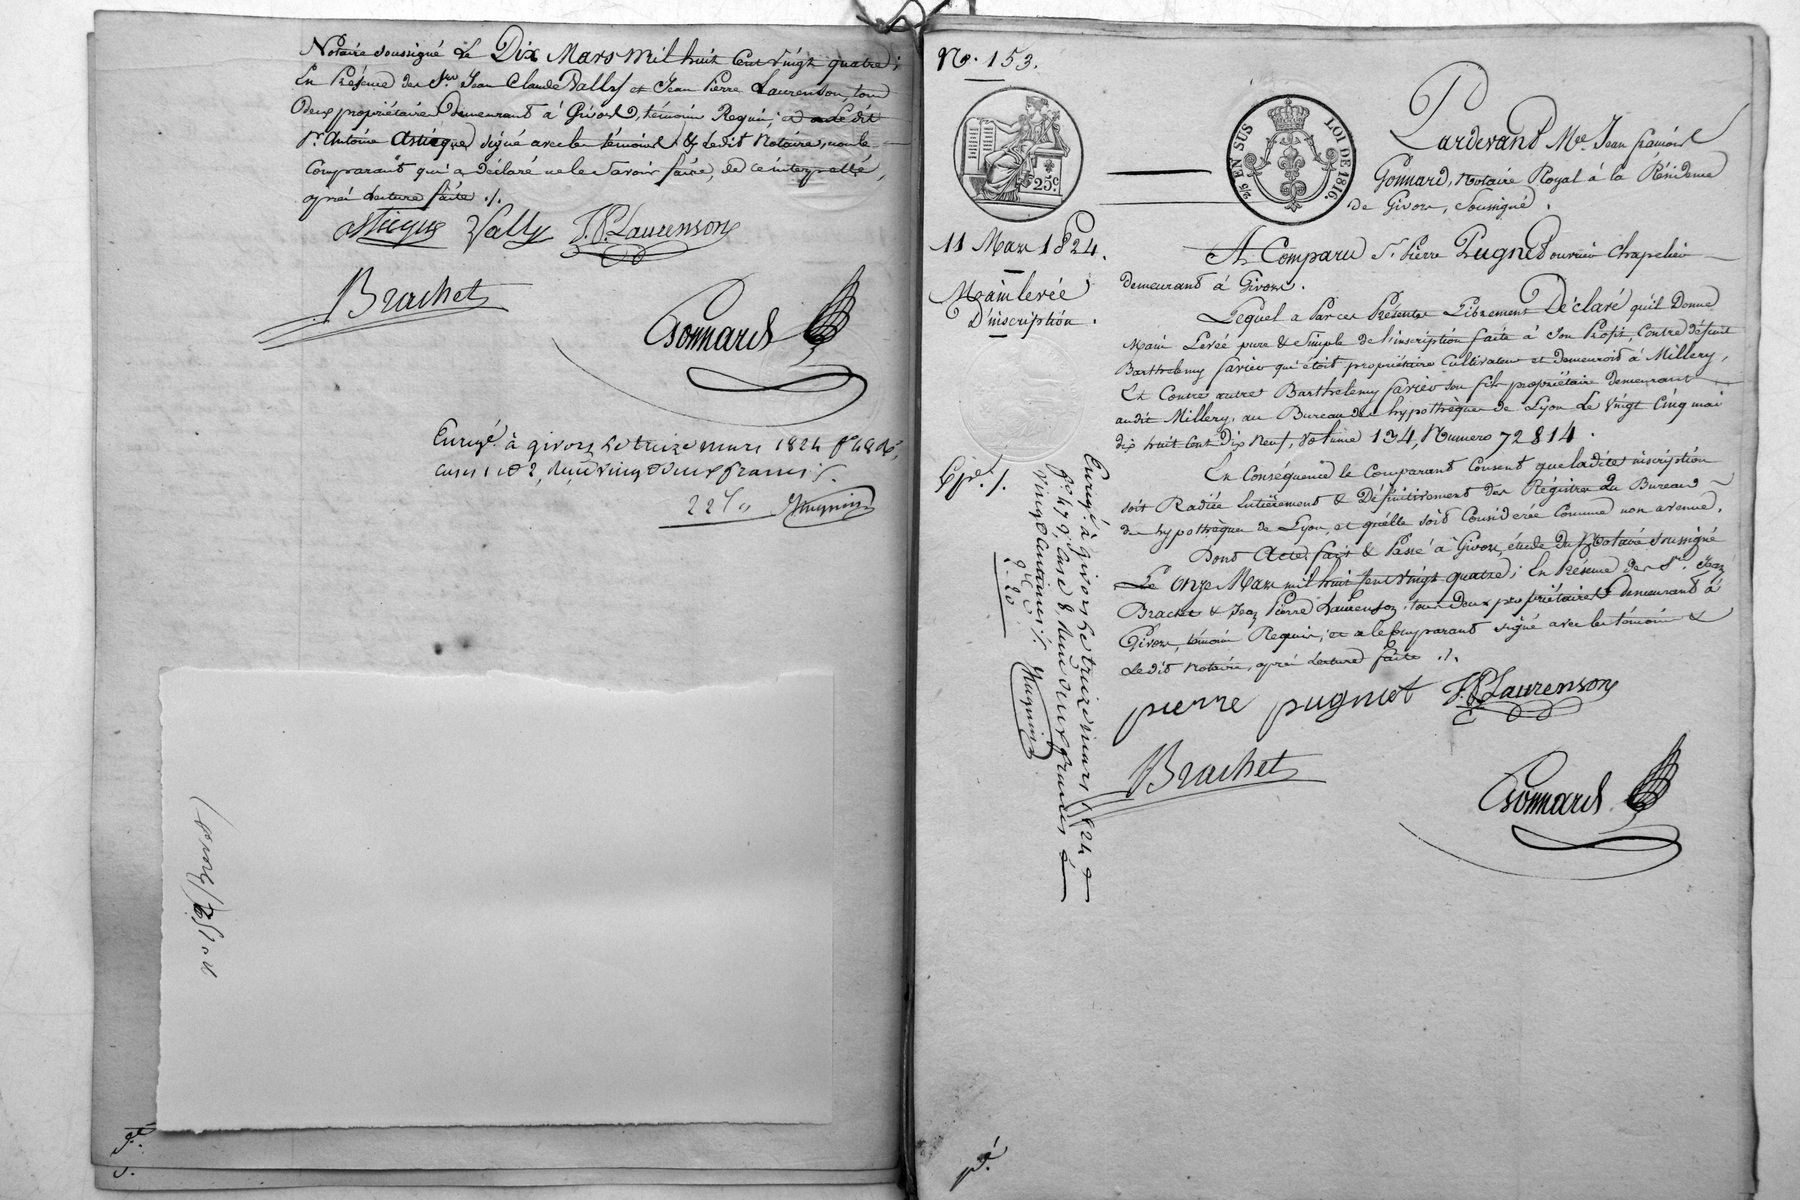 Notaire soussigné Le Dix Mars mil huit Cent Vingt quatre;
En Présence des Srs. Jean Claude Vally et Jean Pierre Laurenson, tous
Deux propriétaires Demeurant à Givors, témoins Requis; et a Le dit
Sr. Antoine signé avec les témoins & Ledit Notaire, non le
Comparant qui a Déclaré ne le Savoir faire, de ce interpellé,
après Lecture faite ./.
Vally J.P. Laurenson
Brachet
Gonnard
Enregé. à givors Le treize mars 1824 fo 48
cases 1 et 2, reçu vingt deux francs
22f
No. 153.
25c.
EN SUS
LOI DE 1816.
11 Mars 1824.
Mainlevée
D'inscription.
Expé. /.
Pardevant Me. Jean francois
Gonnard, Notaire Royal à la Résidence
de Givors, Soussigné.
A Comparu Sr. Pierre Pugnet ouvrier Chapelier
demeurant à Givors.
Lequel a Par ces Présentes Librement Déclaré qu'il Donne
Main Levée pure & Simple de l'inscription faite à Son Profit, Contre défunt
Barthelemy favier qui étoit propriétaire Cultivateur et demeuroit à Millery,
Et Contre autre Barthelemy favier son fils propriétaire demeurant
audit Millery, au Bureau des hypothèques de Lyon Le Vingt Cinq mai
dix huit cent Dix Neuf, Volume 134, Numero 72814.
En Conséquence le Comparant Consent que ladite inscription
soit Radiée Entièrement & Définitivement des Régistres du Bureau
des hypothèques de Lyon, et qu'elle soit Considerée Comme non avenue.
Dont Acte, fait & Passé à Givors, étude du Notaire Soussigné
Le Onze Mars mil huit Cent Vingt quatre; En Présence des Srs. Jean
Brachet & Jean Pierre Laurenson, tous Deux propriétaires Demeurant à
Givors, témoins Requis; et a le Comparant signé avec les témoins &
Ledit Notaire, après Lecture faite ./.
pierre pugniet J.P. Laurenson
Brachet
Gonnard
Enregé. à givors Le treize mars 1824
fo 47 vo, case 8, reçu deux francs &
vingt centimes
2f. 20